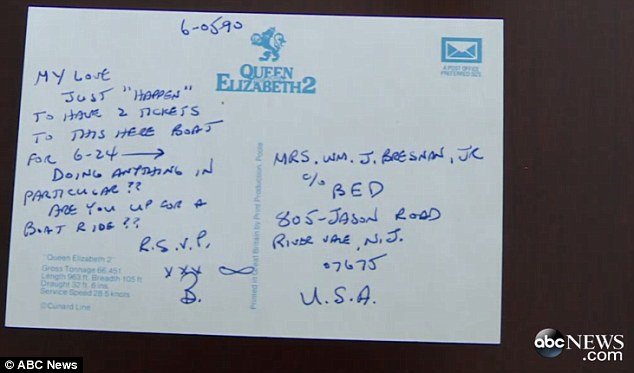 6-0590
QUEEN
ELIZABETH 2
A POST OFFICE
PREFERRED SIZE
MY LOVE
JUST "HAPPEN"
TO HAVE 2 TICKETS
TO THIS HERE BOAT
FOR 6-24 →
DOING ANYTHING IN
PARTICULAR??
ARE YOU UP FOR A
BOAT RIDE??
R.S.V.P.
xxx ∞
B.
"Queen Elizabeth 2"
Gross Tonnage 66,451
Length 963 ft. Breadth 105 ft
Draught 32 ft. 6 ins.
Service Speed 28.5 knots
©Cunard Line
Printed in Great Britain by Print Production, Poole
MRS. WM. J. BRESNAN, JR
c/o
BED
805-JASON ROAD
RIVER VALE, N.J.
07675
U.S.A.
abcNEWS
.com
© ABC News